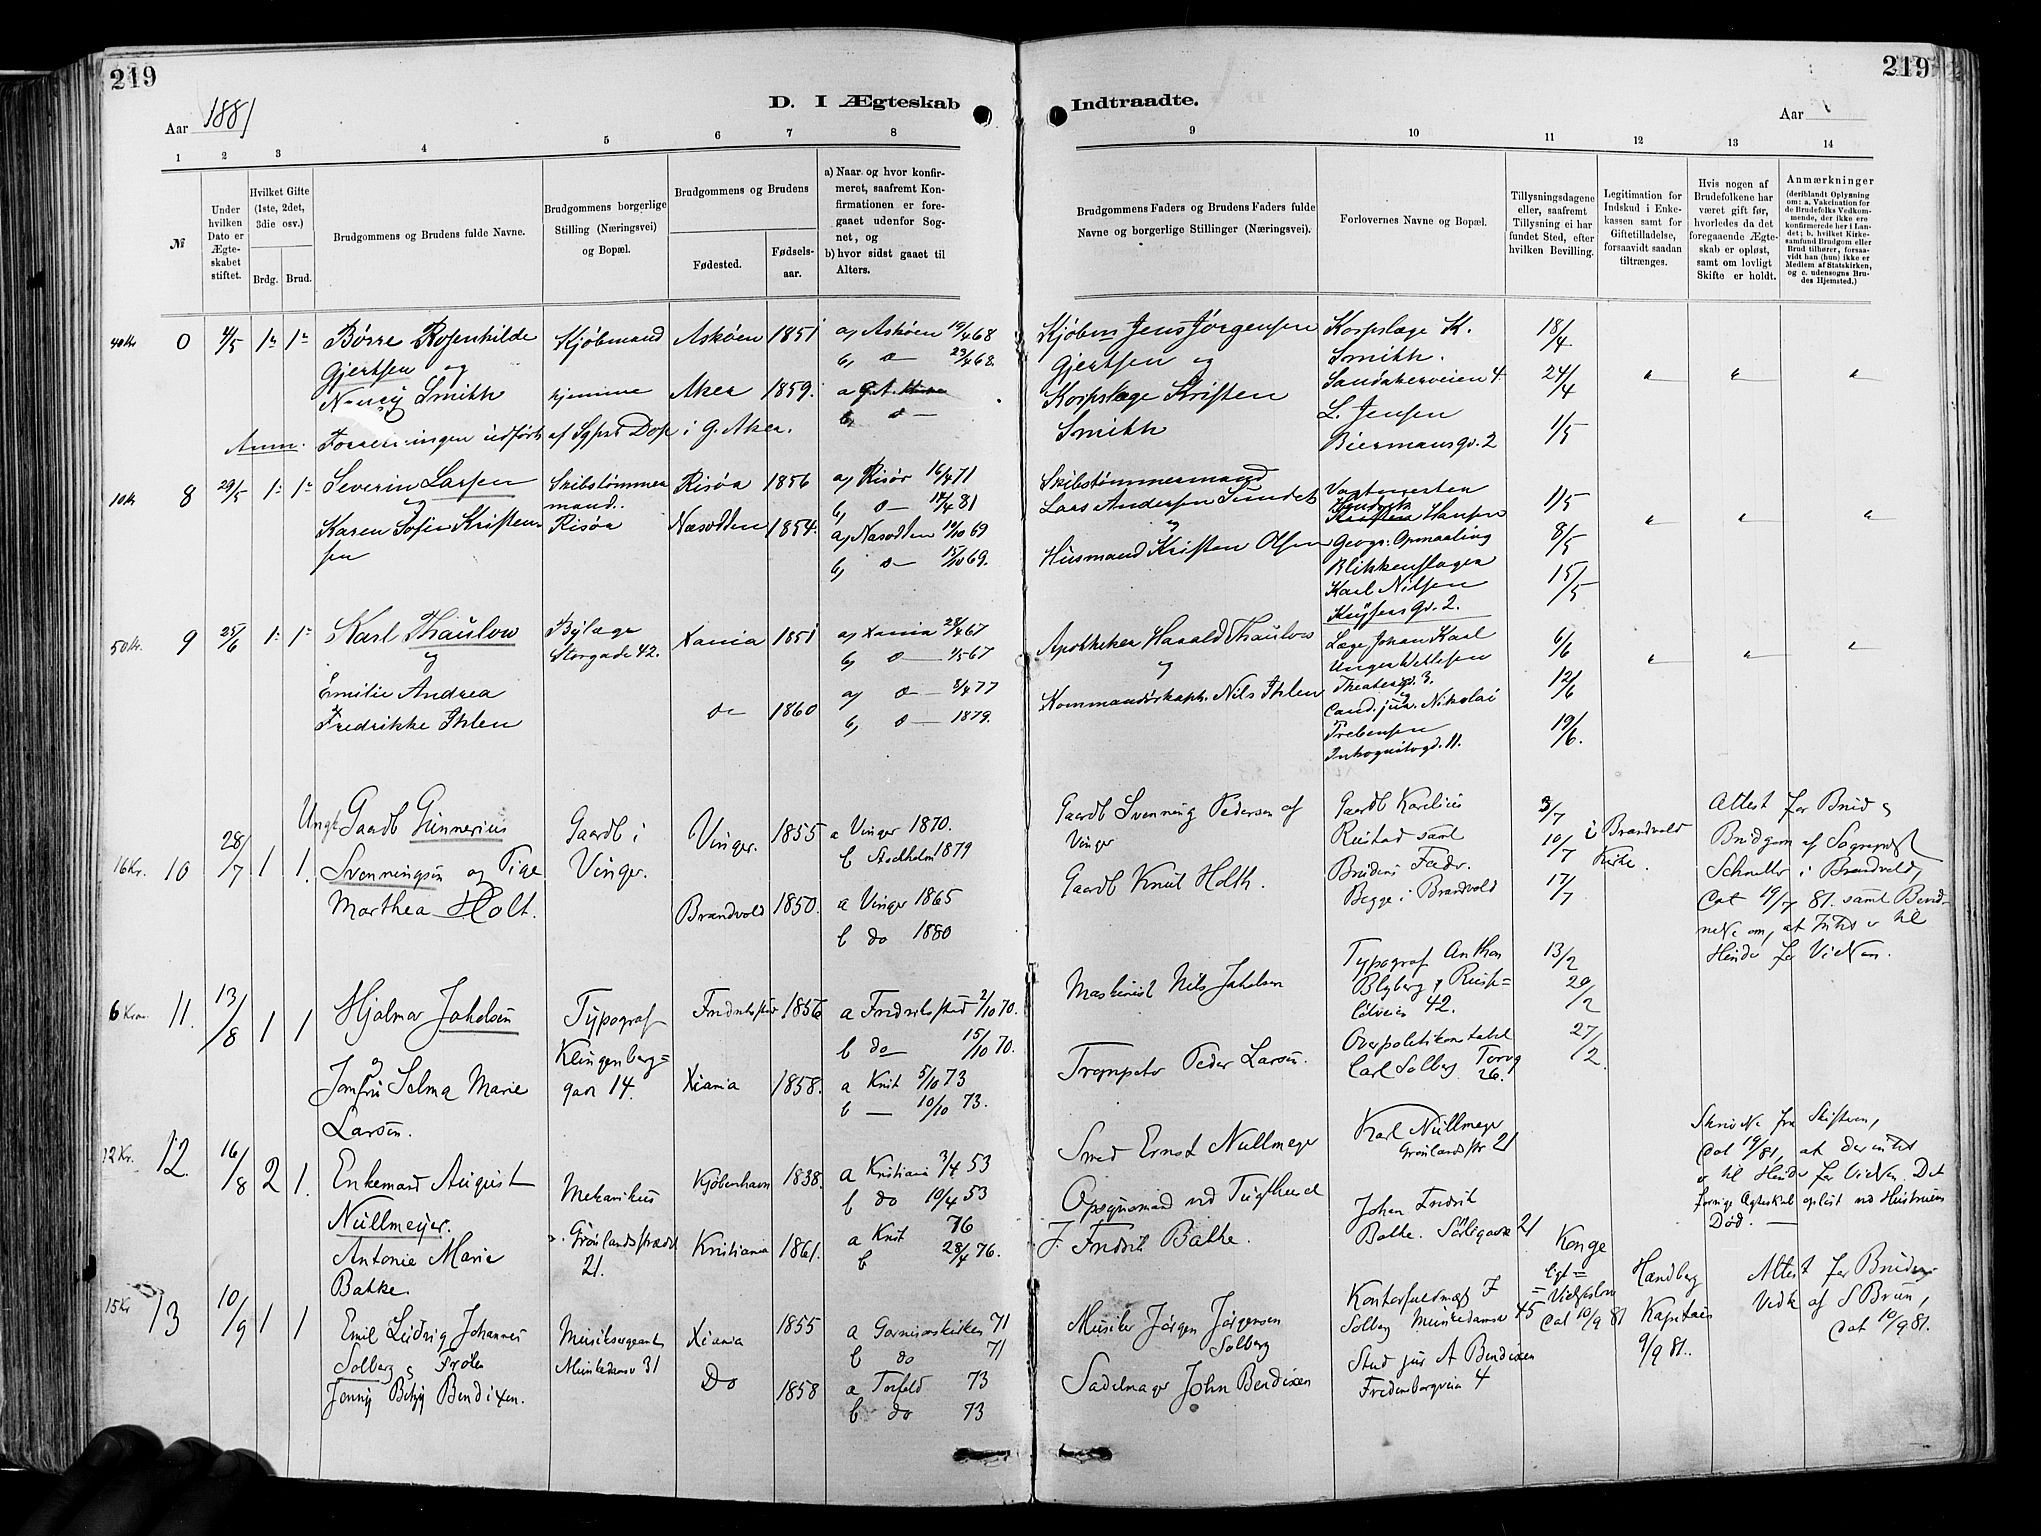 219
219
D. I Ægteskab Indtraadte.
Aar 1881
Aar
1 2 3 4 5 6 7 8 9 10 11 12 13 14
№
Under hvilken Dato er Ægteskabet stiftet.
Hvilket Gifte (1ste, 2det, 3die osv.)
Brdg. Brud.
Brudgommens og Brudens fulde Navne.
Brudgommens borgerlige Stilling (Næringsvei) og Bopæl.
Brudgommens og Brudens
Fødested.
Fødselsaar.
a) Naar og hvor konfirmeret, saafremt Konfirmationen er foregaaet udenfor Sognet, og
b) hvor sidst gaaet til Alters.
Brudgommens Faders og Brudens Faders fulde Navne og borgerlige Stillinger (Næringsvei).
Forlovernes Navne og Bopæl.
Tillysningsdagene eller, saafremt Tillysning ei har fundet Sted, efter hvilken Bevilling.
Legitimation for Indskud i Enkekassen samt for Giftetilladelse, forsaavidt saadan tiltrænges.
Hvis nogen af Brudefolkene har været gift før, hvorledes da det foregaaende Ægteskab er opløst, samt om lovligt Skifte er holdt.
Anmærkninger
(deriblandt Oplysning om: a. Vakcination for de Brudefolks Vedkommende, der ikke ere konfirmerede her i Landet; b. hvilket Kirkesamfund Brudgom eller Brud tilhører, forsaavidt han (hun) ikke er Medlem af Statskirken, og c. udensogns Brudes Hjemsted.)
40 Kr. 0 4/5 1ste 1ste Børre Rosenkilde Kjøbmand Askøen 1851 a, Askøen 19/4 68 Kjøbm Jens Jørgensen Korpslæge K. 18/4
Gjertsen og b, do 23/4 68. Gjertsen og Smith.
Nancy Smith hjemme Aker 1859. a G. A. Korpslæge Kristen Sandakerveien 4. 24/4
b, do Smith L. Jensen
Anm. Forretningen udført af Sgpst Dop i G. Aker. Biermansgd. 2 1/5
10 Kr 8 29/5 1 1 Severin Larsen Skibstømmer Risøa 1856 a, Risør 16/4 71 Skibstømmermand
og mand. b, do 17/4 81 Lars Andersen Sundet Hansen 1/5
Karen Sofie Kristen Risøa Næsodden 1854. a, Næsodden 10/10 69 og Geogr. Opmaaling 8/5
sen b, do 15/10 69. Husmand Kristen Olsen Blikkenslager
Karl Nilsen 15/5
Knysens Gd. 2.
50 Kr. 9 25/6 1 1 Karl Thaulow Bylæge Xania 1851 a, Xania 28/4 67 Apotheker Harald Thaulow Læge Johan Karl 6/6
og Storgade 42. b, do 1/5 67 og Unger Vetlesen
Emilie Andrea a, do 8/4 77 Kommandørkapt. Nils Ihlen Theatergd. 3. 12/6
Fredrikke Ihlen do 1860 b, do 1879. Cand. jur. Nikolai
Prebensen 19/6.
Inkognitogd. 11.
16 Kr. 10 28/7 1 1. Ungk Gaardb Gunnerius Gaardb i Vinger. 1855 a Vinger 1870. Gaardb Svenning Pedersen af Gaardb Karelius 3/7 Attest for Brud &
b Stockholm 1879 Vinger Rustad samt 10/7 i Brandvold Brudgom af Sognepst
Svenningsen og Pige Vinger. Gaardb Knut Holth. Brudens Fader. Kirke. i Brandvold,
Marthea Holt. Brandvold 1850. a Vinger 1865 Begge i Brandvold 17/7 Dat 19/7 81. samt
b do 1880 om, at Intet er til
Hinder for Vielsen.
6 Kroner 11. 13/8 1 1 Hjalmar Jakobsen Typograf Fredrikstad 1856 a Fredrikstad 2/10 70. Maskinist Nils Jakobsen Typograf Anthon 13/2
og Klingenberg= b do 15/10 70. Blyberg 42. 20/2
Jomfru Selma Marie gaden 14. Xiania 1858. a Knit 5/10 73 Trompeter Peder Larsen. Overpolitikonstabel 27/2.
Larsen. b — 10/10 73. Carl Solberg Torvg 26.
12 Kr. 12. 16/8 2 1. Enkemand August Mekanikus Kjøbenhavn 1838. a Kristiania 3/4 53 Smed Ernst Nullmeyer Karl Nullmeyer Skrivelse fra Skifteren,
Nullmeyer. Grønlandsstræde b do 10/4 53 Opsynsmand ved Tugthuset Grønlandsstr 21 Dat 19/81, at der intet
Antonie Marie 21. Kristiania 1861. a Knit 76 J. Fredrik Batke. Johan Fredrik er til Hinder for Vielsen. Det
Batke. b 28/4 76. Batke. 21 forrige Ægteskab opløst ved Hustruens
Død.
15 Kr 13 10/9 1 1 Emil Ludvig Johannes Musiksergeant Xiania 1855 a Garnisonskirken 71 Musiker Jørgen Jørgensen Kontorfuldmægt. J Konge Hændberg Attest for Bruden
Solberg & Frøken Munkedamsv 31 b do 71 Solberg Solberg Munkedamsv 45 ligt= Kaptain Vedk af S Brun,
Jenny Betzy Bendixen. Do 1858 a Torfeld 73 Sadelmager John Bendixen Stud jur A Bendixen Dat 10/9 81 9/9 81. Dat 10/9 81.
b do 73 Fredenborgveien 4